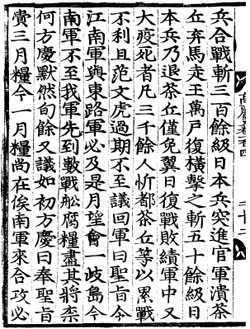 兵合戰斬三百餘級日本兵突進官軍潰茶
丘弃馬走王萬戶復橫擊之斬五十餘級日
本兵乃退茶丘僅免翼日復戰敗績軍中又
大疫死者凡三千餘人忻都茶丘等以累戰
不利且范文虎過期不至議回軍曰聖旨令
江南軍與東路軍必及是月望會一歧島今
南軍不至我軍先到數戰舩腐糧盡其將柰
何方慶默然旬餘又議如初方慶曰奉聖旨
賫三月糧今一月糧尚在俟南軍來合攻必